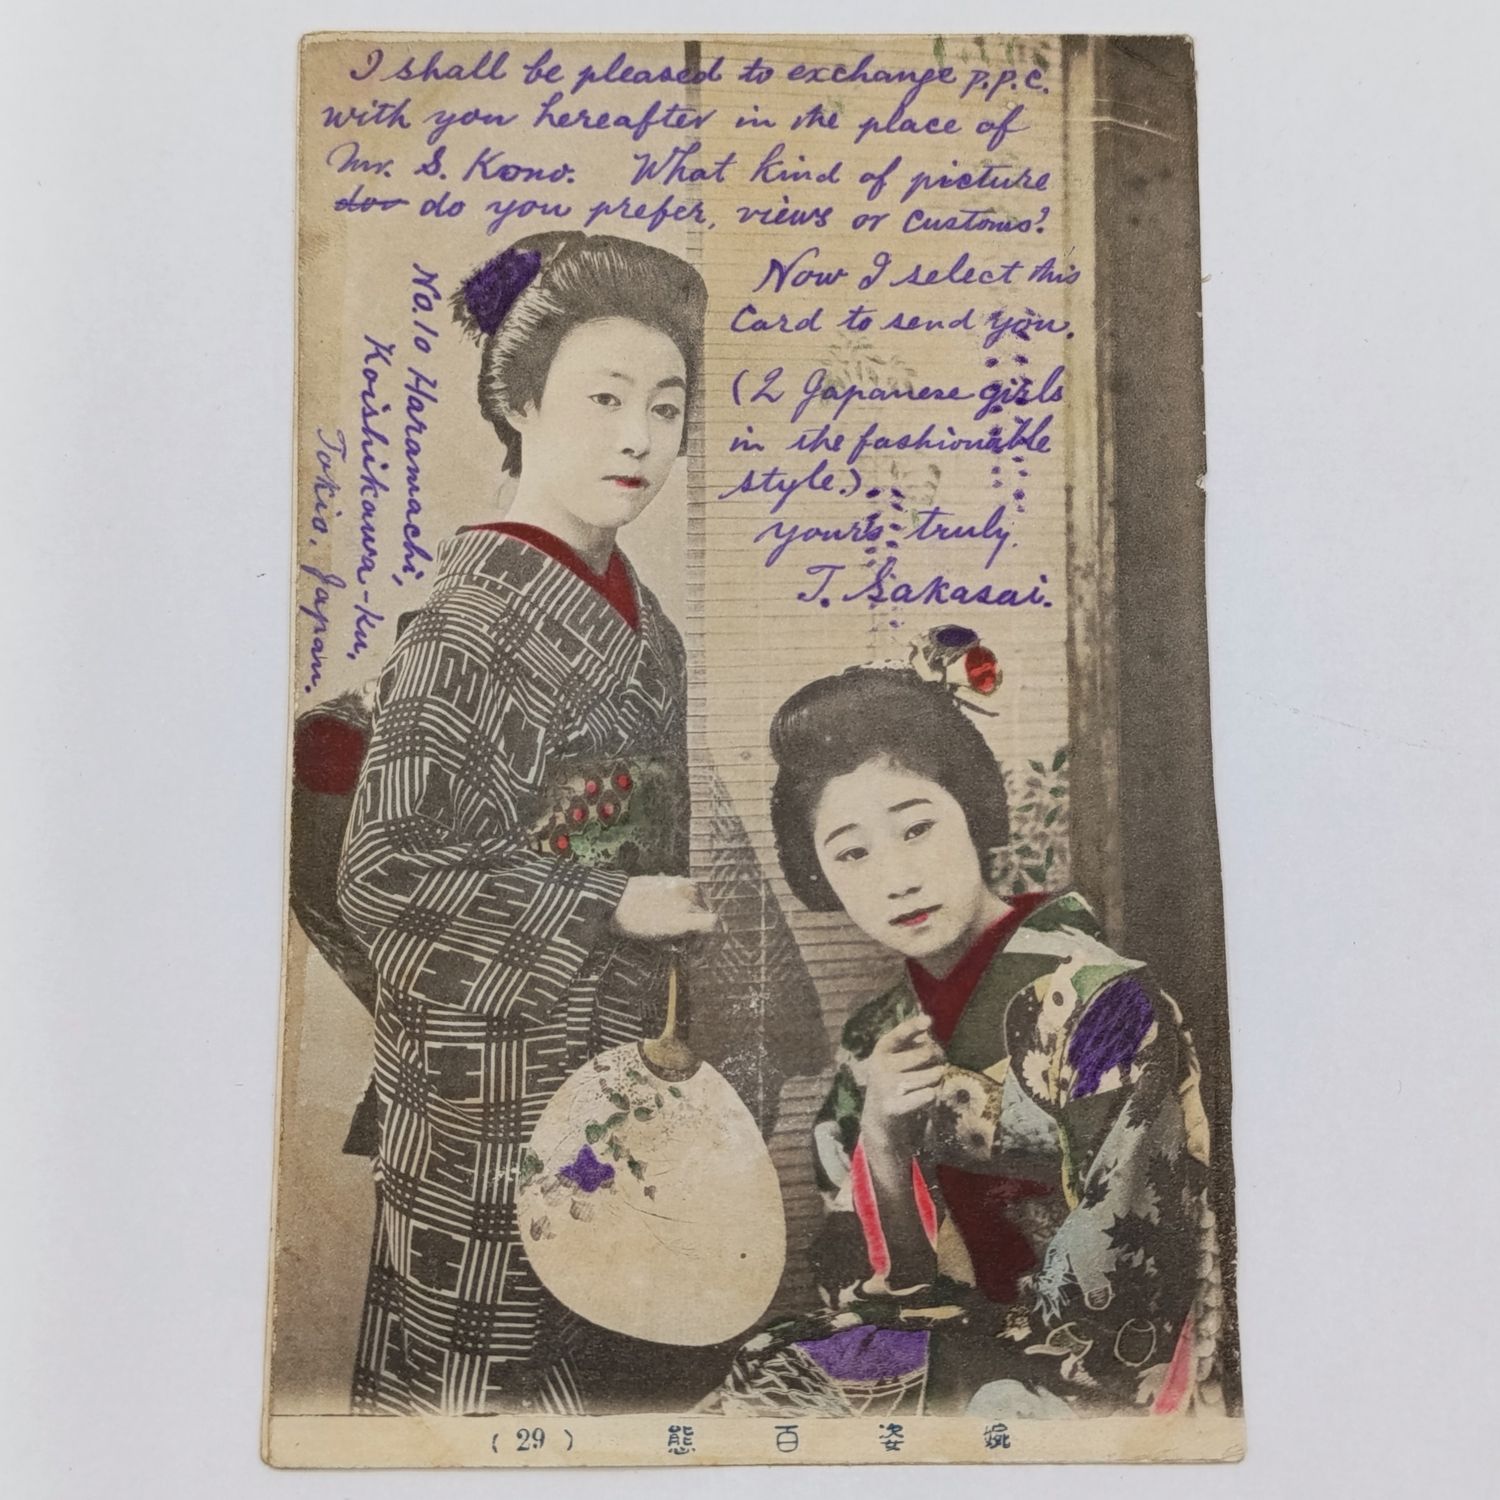 I shall be pleased to exchange p.p.c.
with you hereafter in the place of
Mr. S. Kono. What kind of picture
do you prefer, views or customs?
Now I select this
Card to send you.
(2 Japanese girls
in the fashionable
style.)
yours truly.
T. Sakasai.
No. 10 Haramachi,
Koishikawa-ku,
Tokio. Japan.
(29) 態百姿婉